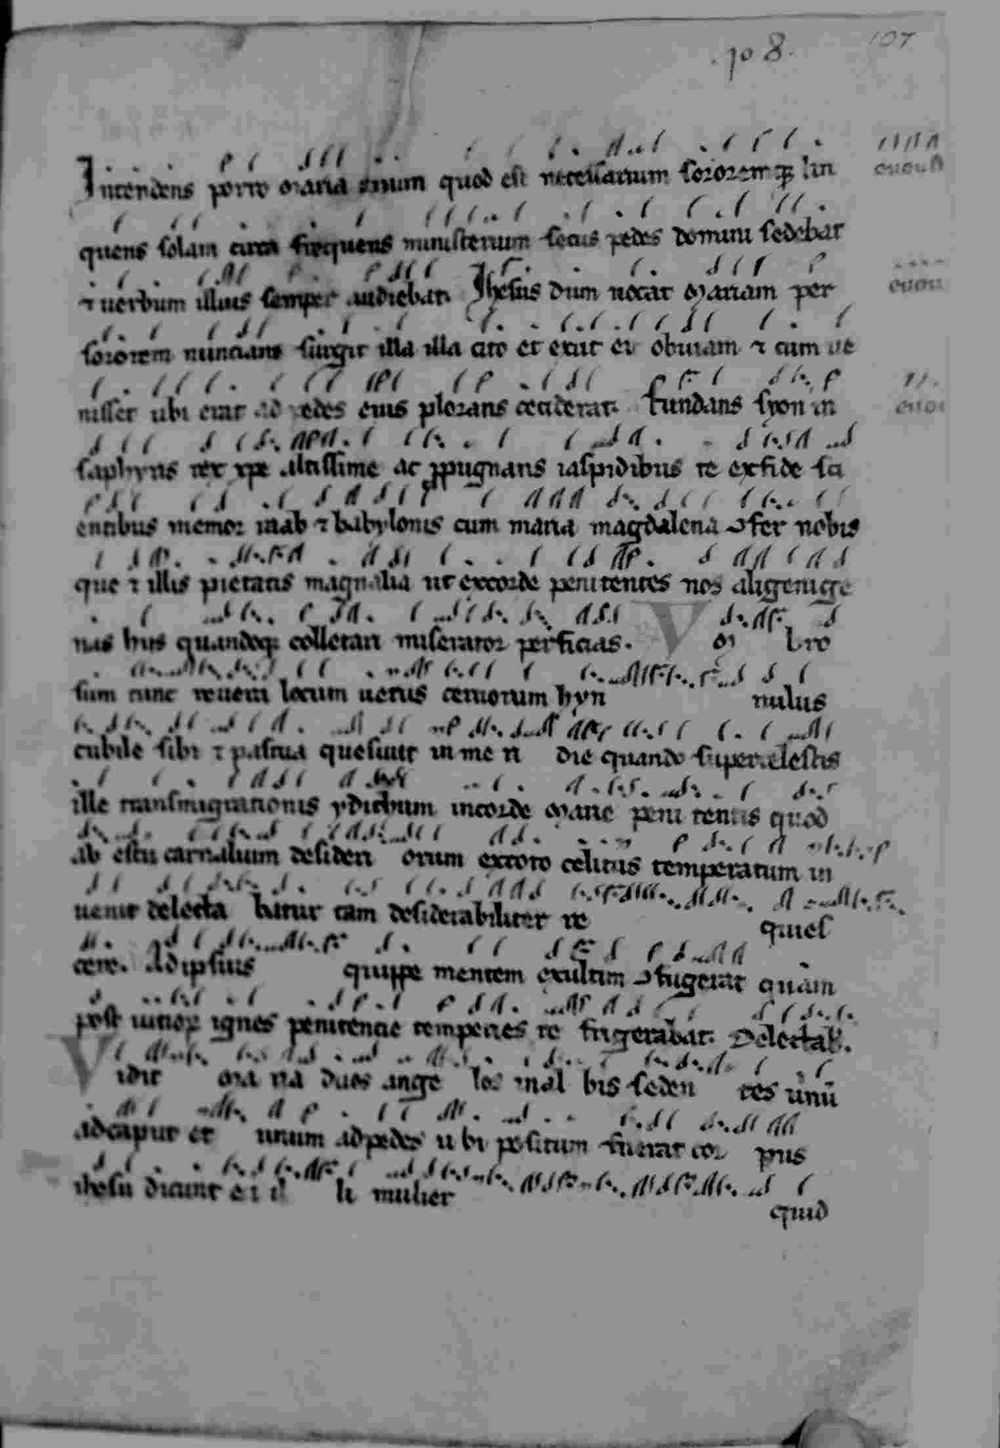 108. 107
Intendens porro maria unum quod est necessarium sororemq; lin euouae
quens solam circa frequens ministerium secus pedes domini sedebat
⁊ uerbum illius semper audiebat. Ihesus dum uocat mariam per euou
sororem nuncians surgit illa illa cito et exiit ei obuiam ⁊ cum ue
nisset ubi erat ad pedes eius plorans ceciderat. Fundans syon in euou
saphyris rex xpe altissime ac ꝓpugnans iaspidibus te exfide sci
entibus memor raab ⁊ babylonis cum maria magdalena ↄfer nobis
que ⁊ illis pietatis magnalia ut excorde penitentes nos alienige
nas hus quandoq; colletari miserator perficias. V m bro
sum nunc reueni locum uetus cernorum hyn nulus
cubile sibi ⁊ pascua quesiuit in me n die quando supercelestis
ille transmigrationis ydithum incorde mane peni tentis quod
ab estu carnalium desideri orum extoto celitus temperatum in
uenit delecta batur tam desiderabiliter re quies
cere. Adipsius quippe mentem exultim ↄfugerat quam
post uitioꝝ ignes penitencie temperies re frigerabat. Delectab.
Vidit ma ria duos ange los inal bis seden tes unū
adcaput et unum adpedes u bi positum fuerat cor pus
ihesu dicunt e i il li mulier quid